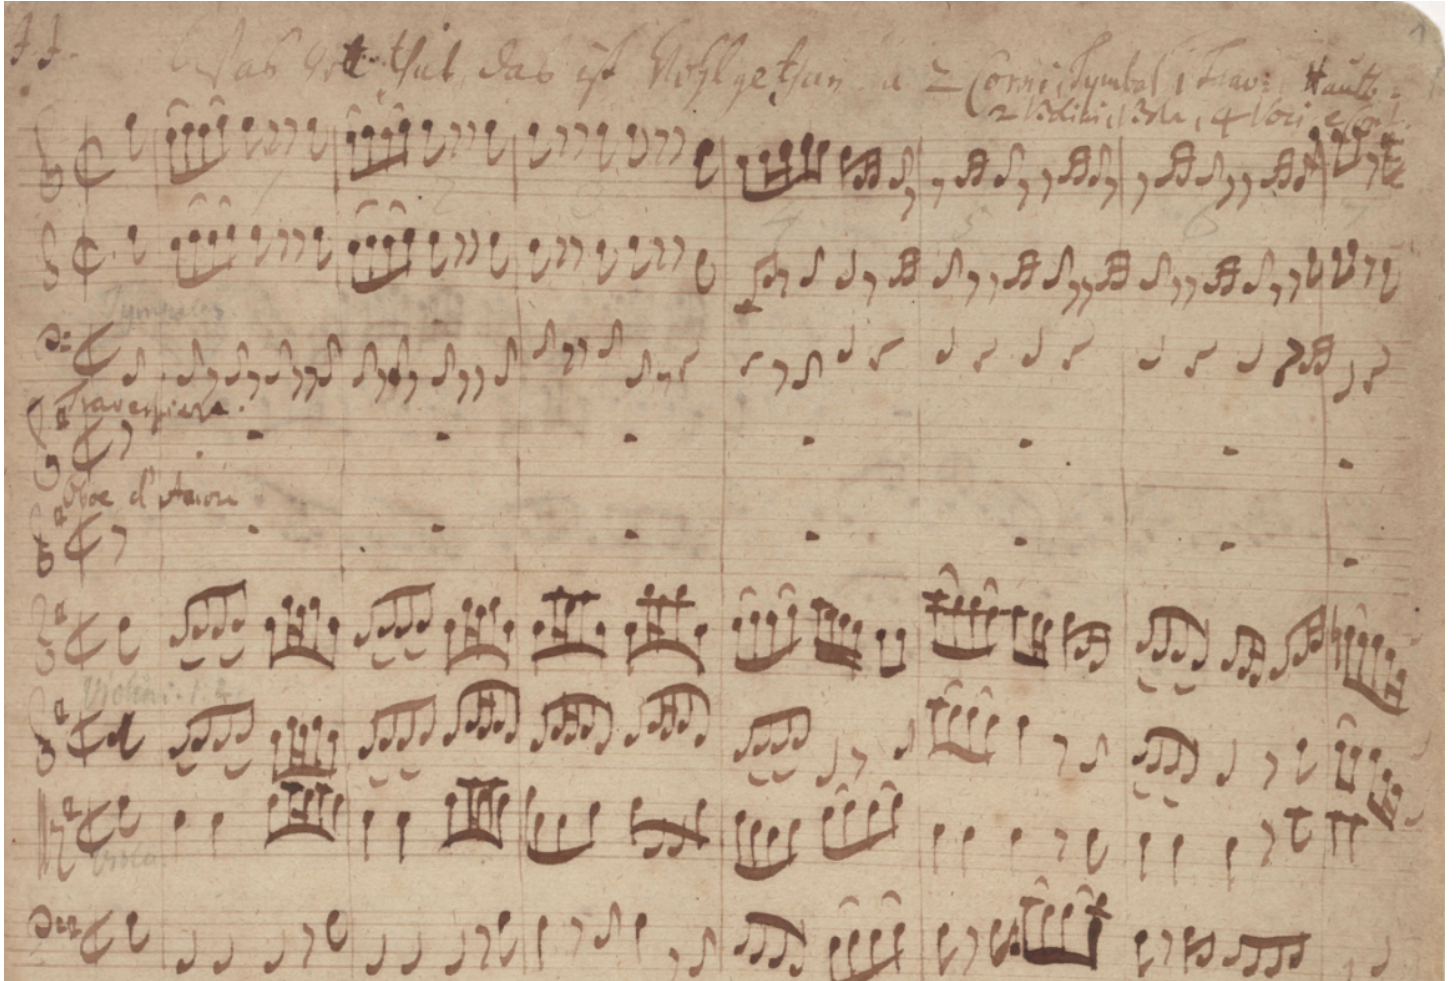 J J. Was Gott thut, das ist Wohlgethan. a 2 Corni, Tymbal, 1 Trav: 1 Hautb:
2 Violini, 1 Viola, 4 Voci e Cont.
1 2 3 4 5 6 7
Tympales.
Traversiere.
Oboe d'Amour
Violini. 1. 2.
Viola